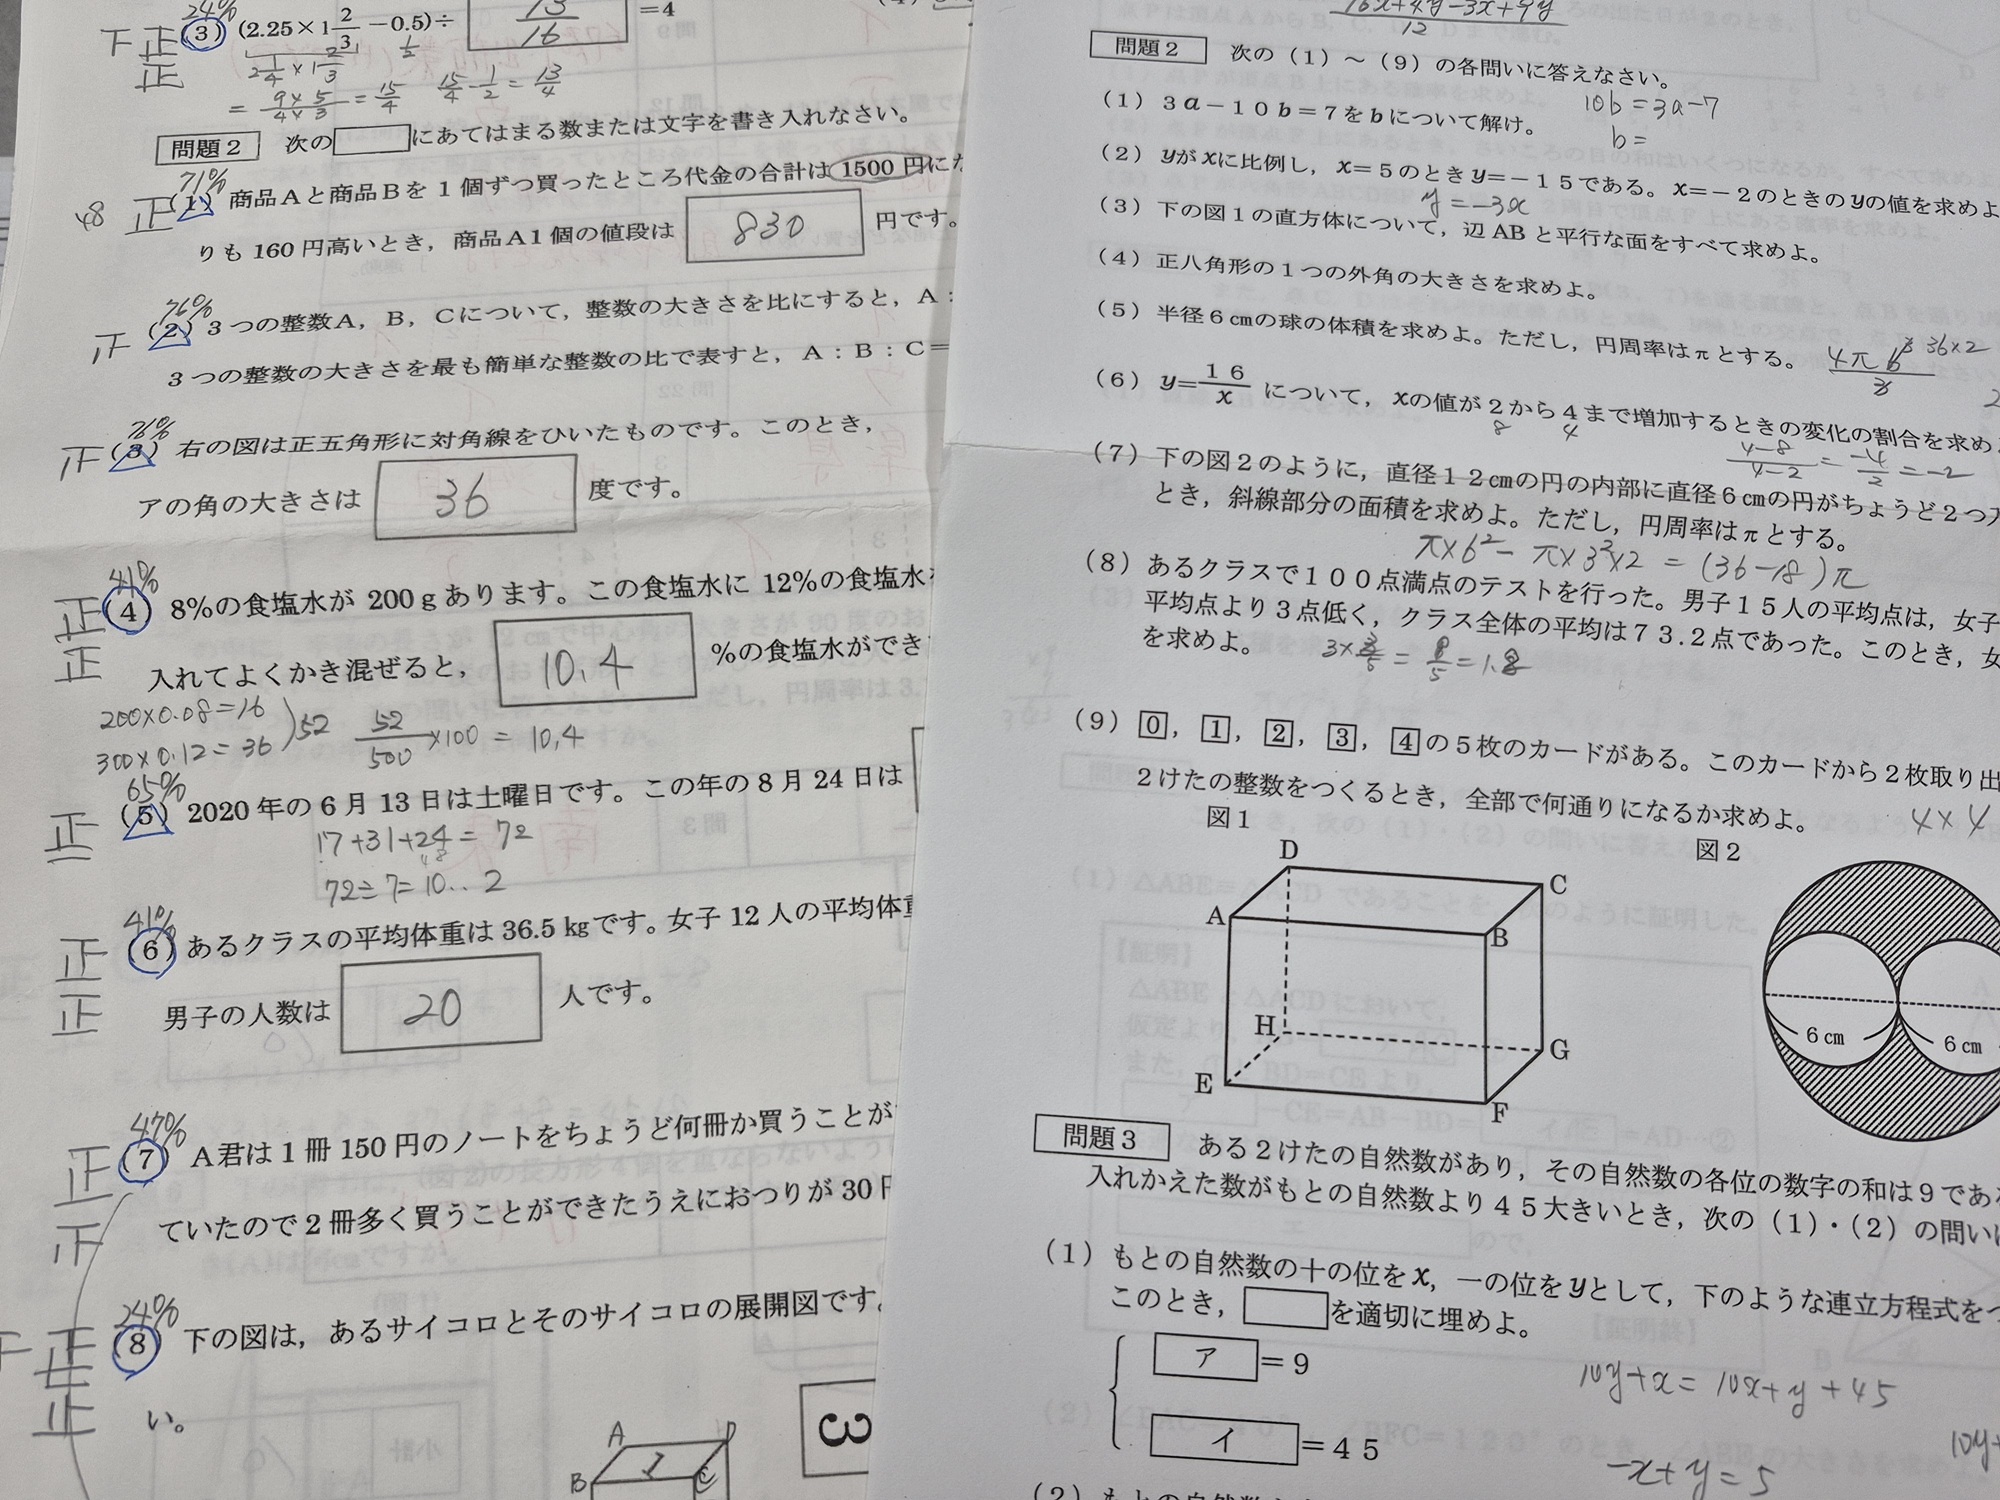 24%
下正 (3) (2.25×1 2/3 −0.5)÷ 13/16 =4
正 2 1/4 × 1 2/3 1/2
= 9×5/4×3 = 15/4 15/4 − 1/2 = 13/4
問題2 次の にあてはまる数または文字を書き入れなさい。
71%
正 (1) 商品Aと商品Bを1個ずつ買ったところ代金の合計は1500円に
りも160円高いとき，商品A1個の値段は 830 円です。
76%
正 (2) 3つの整数A，B，Cについて，整数の大きさを比にすると，A：
3つの整数の大きさを最も簡単な整数の比で表すと，A：B：C＝
76%
正 (3) 右の図は正五角形に対角線をひいたものです。このとき，
アの角の大きさは 36 度です。
41%
正 (4) 8%の食塩水が 200gあります。この食塩水に 12%の食塩水
正 入れてよくかき混ぜると， 10.4 %の食塩水ができ
200×0.08=16
300×0.12=36 )52 52/500 ×100 = 10.4
65%
正 (5) 2020年の6月13日は土曜日です。この年の8月24日は
17+31+24= 72
72÷7=10‥2
41%
正 (6) あるクラスの平均体重は36.5㎏です。女子12人の平均体
正 男子の人数は 20 人です。
47%
正 (7) A君は1冊150円のノートをちょうど何冊か買うことが
正 ていたので2冊多く買うことができたうえにおつりが30
24%
正 (8) 下の図は，あるサイコロとそのサイコロの展開図です。
正 い。
3
A D
B C
16x+4y−3x+9y
12
問題2 次の（1）～（9）の各問いに答えなさい。
（1）3a−10b=7をbについて解け。
10b=3a−7
b=
（2）yがxに比例し，x=5のときy=−15である。x=−2のときのyの値を求めよ
y=−3x
（3）下の図1の直方体について，辺ABと平行な面をすべて求めよ。
（4）正八角形の1つの外角の大きさを求めよ。
（5）半径6㎝の球の体積を求めよ。ただし，円周率はπとする。
4π6³/3 36×2
（6）y=16/x について，xの値が2から4まで増加するときの変化の割合を求め
8 4
4−8/4−2 = −4/2 = −2
（7）下の図2のように，直径12㎝の円の内部に直径6㎝の円がちょうど2つ
とき，斜線部分の面積を求めよ。ただし，円周率はπとする。
π×6²−π×3²×2 = (36−18)π
（8）あるクラスで100点満点のテストを行った。男子15人の平均点は，女子
平均点より3点低く，クラス全体の平均は73.2点であった。このとき，女
を求めよ。
（9）0，1，2，3，4の5枚のカードがある。このカードから2枚取り出
2けたの整数をつくるとき，全部で何通りになるか求めよ。
4×4
図1
図2
D
C
A
B
H
G
E
F
6㎝ 6㎝
問題3 ある2けたの自然数があり，その自然数の各位の数字の和は9であ
入れかえた数がもとの自然数より45大きいとき，次の（1）・（2）の問い
（1）もとの自然数の十の位をx，一の位をyとして，下のような連立方程式を
このとき， を適切に埋めよ。
ア =9
10y+x=10x+y+45
イ =45
10y+
−x+y=5